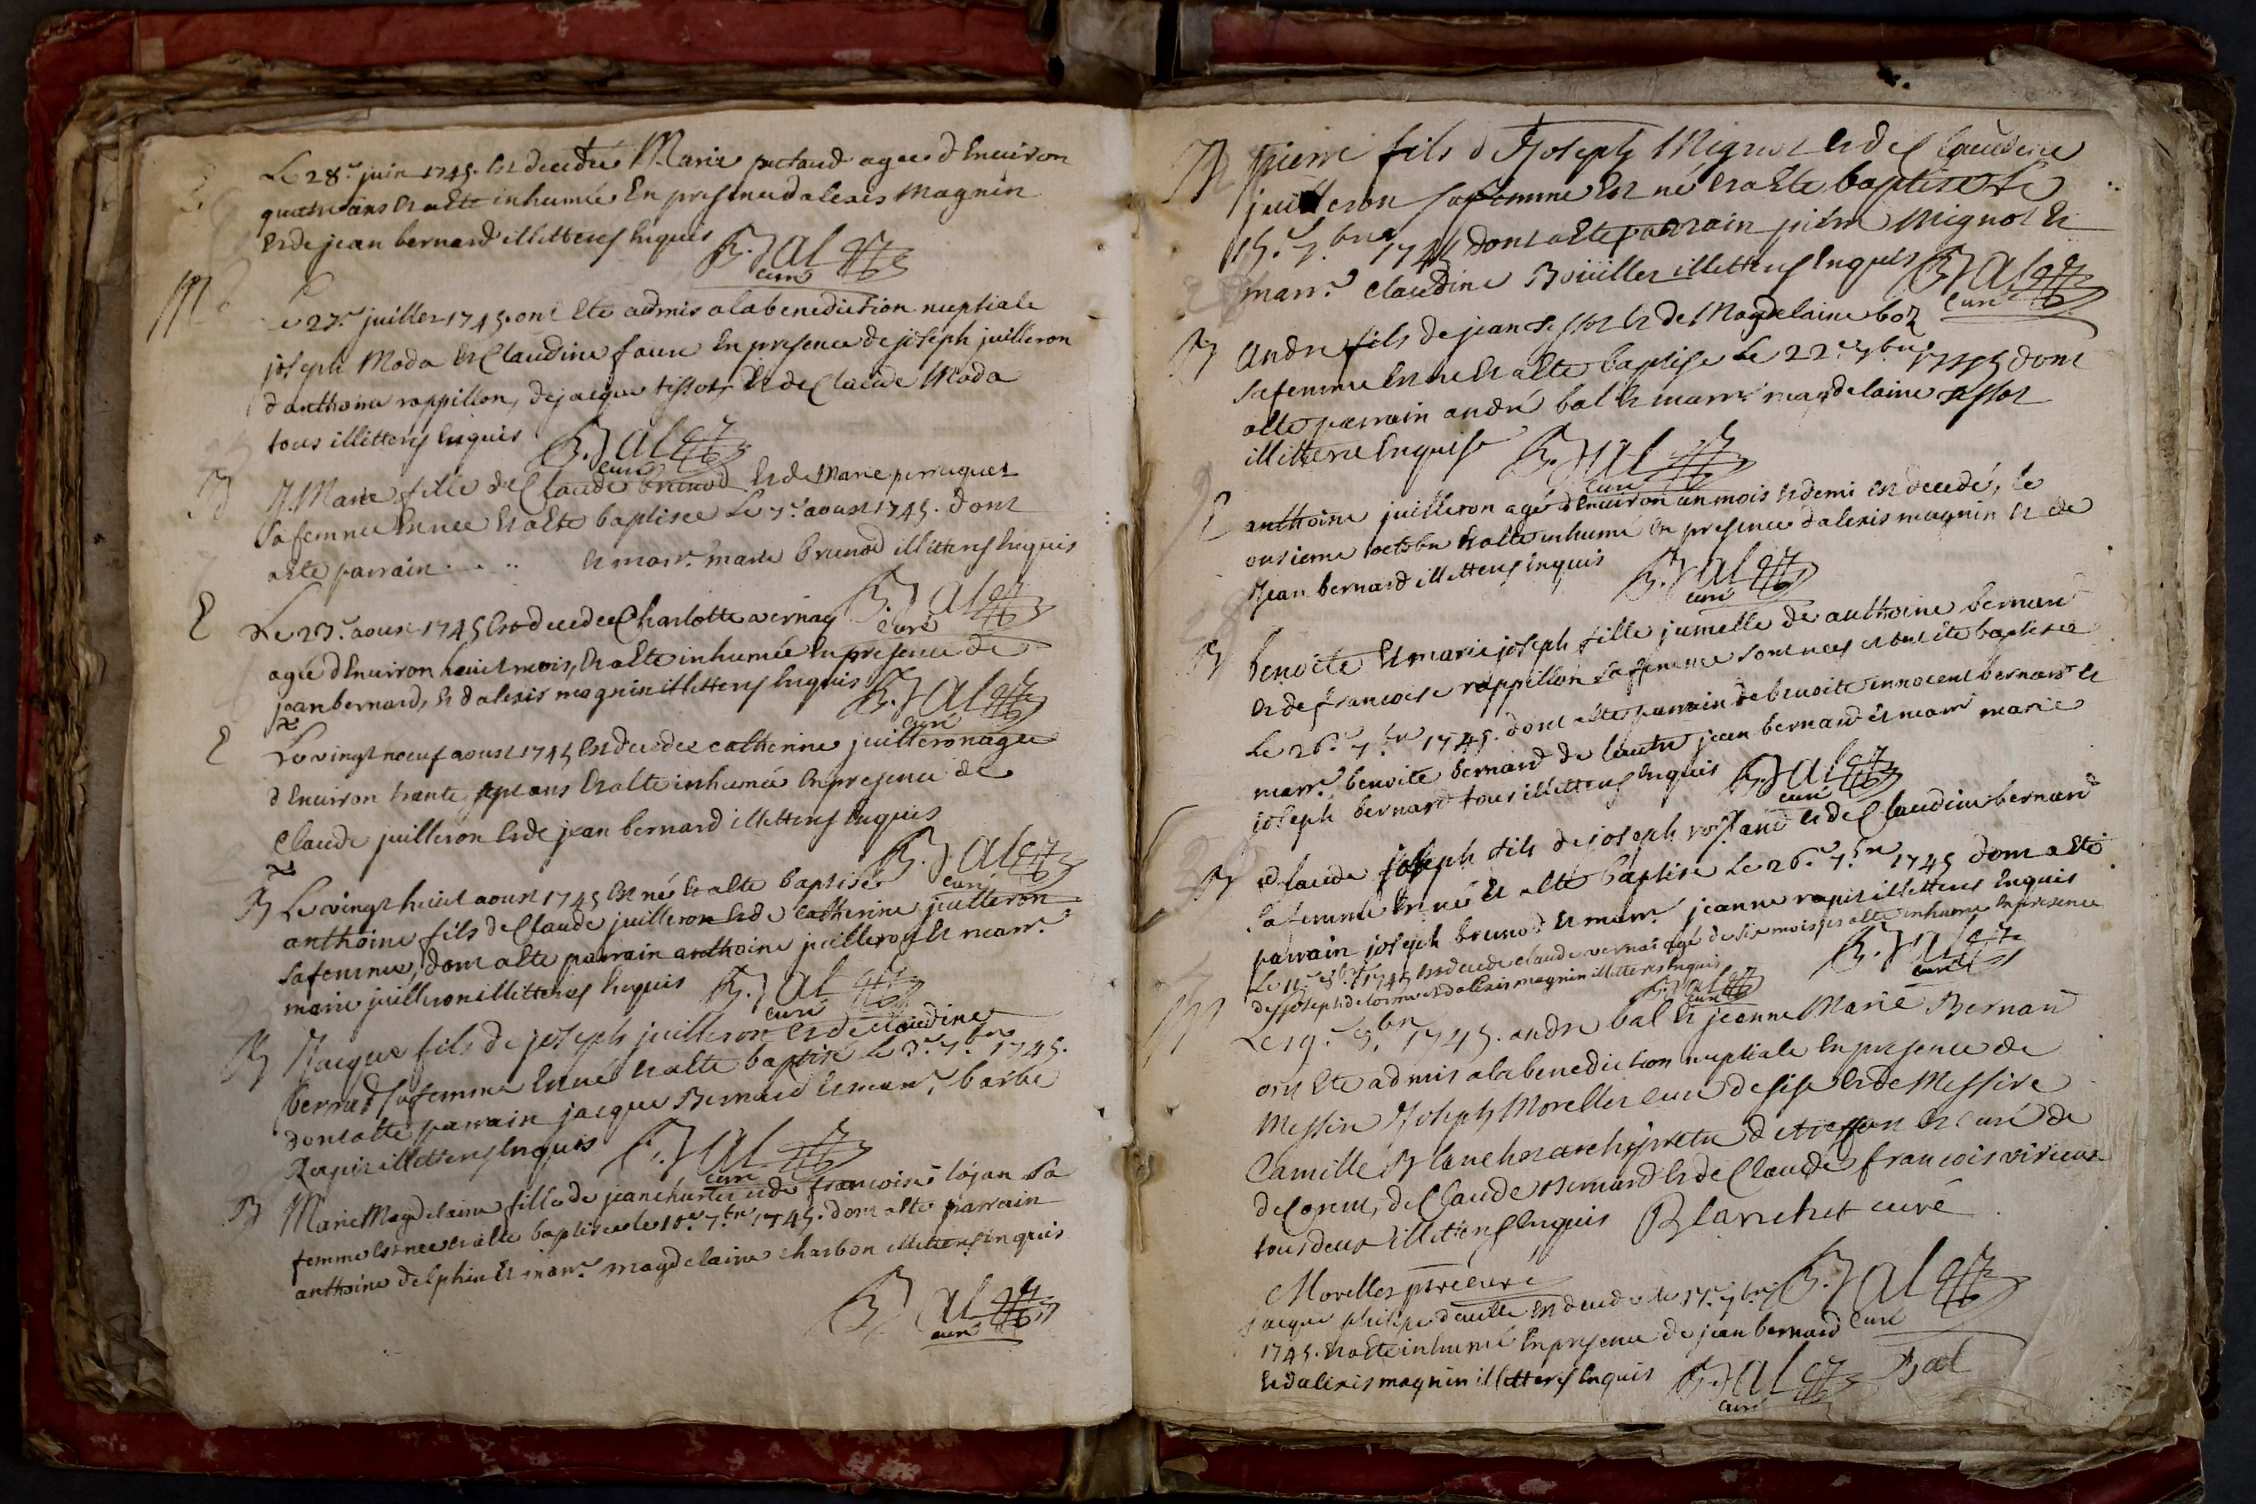 Le 28.e juin 1745. est decedée Marie putaud agée d Environ
quatre ans et a Ete inhumée En presence d alexis Magnin
et de jean bernard illitteres Enquis B. Bal
curé
M Le 27.e juillet 1745. ont Ete admis a la benediction nuptiale
joseph Moda et Claudine faure En presence de joseph juilleron
d anthoine rappillon, de jacque tissot, Et de Claude Moda
tous illitteres Enquis B. Bal
curé
B J. Marie fille de Claude brunod et de Marie perruquet
sa femme Est nee Et a Ete baptisee Le 7.e aoust 1745. dont
a Ete parrain . . .. et marr.e marie brunod illitteres Enquis
B. Bal
curé
E Le 23.e aoust 1745 Est decedee Charlotte avernay
agée d Environ huict mois, Et a Ete inhumée En presence de
jean bernard, et d alexis magnin illitteres Enquis B. Bal
curé
E Le vingt neuf aoust 1745 Est decedee catherine juilleron agée
d Environ trante sept ans Et a Ete inhumée En presence de
Claude juilleron Et de jean bernard illitteres Enquis
B. Bal
curé
B Le vingt huict aoust 1745 Est né Et a Ete baptisé
anthoine fils de Claude juilleron et de catherine juilleron
sa femme, dont a Ete parrain anthoine juilleron Et marr.e
marie juilleron illitteres Enquis B. Bal
curé
B Jacque fils de joseph juilleron et de Claudine
bernard sa femme Est né Et a Ete baptisé Le 3.e 7.bre 1745.
dont a Ete parrain jacque Bernard Et marr.e barbe
Rapit illitteres Enquis B. Bal
curé
B Marie Magdelaine fille de jean et de francoise lojan sa
femme Est nee et a Ete baptisee le 10.e 7.bre 1745. dont a Ete parrain
anthoine delphin Et marr.e magdelaine charbon illitteres Enquis
B. Bal
curé
B pierre fils d Joseph Mignot et de Claudine
juilleron sa femme Est né Et a Ete baptisé Le
15.e 7.bre 1745 dont a Ete parrain pierre Mignot Et
marr.e Claudine Bouiller illitteres Enquis B. Bal
curé
B Andre fils de jean tissot et de Magdelaine boz
sa femme Est né Et a Ete baptise Le 22.e 7.bre 1745 dont
a Ete parrain andré bal Et marr.e magdelaine tissot
illittere Enquise B. Bal
curé
E anthoine juilleron agé d Environ un mois et demi Est decedé, le
onsieme octobre Et a Ete inhumé En presence d alexis magnin et de
Jean bernard illitteres Enquis B. Bal
curé
B benoite Et marie joseph fille jumelle de anthoine bernard
et de francoise rappillon sa femme sont nees et ont Ete baptisee
Le 26.e 7.bre 1745. dont a Ete parrain de benoite innocent bernard et
marr.e benoite bernard de lautre jean bernard et marr.e marie
joseph bernard tous illitteres Enquis B. Bal
curé
B Claude joseph fils de joseph rostand et de Claudine bernard
sa femme Est né Et a Ete baptise Le 26.e 7.bre 1745 dont a Ete
parrain joseph brunod Et marr.e jeanne rapit illitteres Enquis
Le 11.e 8.bre 1745 Est decede claude vernai agé de six mois et a Ete inhume En presence
de joseph de lorme et d alexis magnin illitteres Enquis B. Bal
curé
B. Bal
curé
M Le 19.e 8.bre 1745. andre bal Et jeanne Marie Bernard
ont Ete admis a la benediction nuptiale En presence de
Messire Joseph Morellet curé de sise et de Messire
Camille Blanchet archipretre de et curé de
de Claude Bernard Et de Claude francois virieux
tous deux illitteres Enquis Blanchet curé
Morellet pretre curé B. Bal
curé
jacque philipe deville Est decede le 17.e 9.bre
1745. Et a Ete inhumé En presence de jean bernard
Et d alexis magnin illitteres Enquis B. Bal Bal
curé